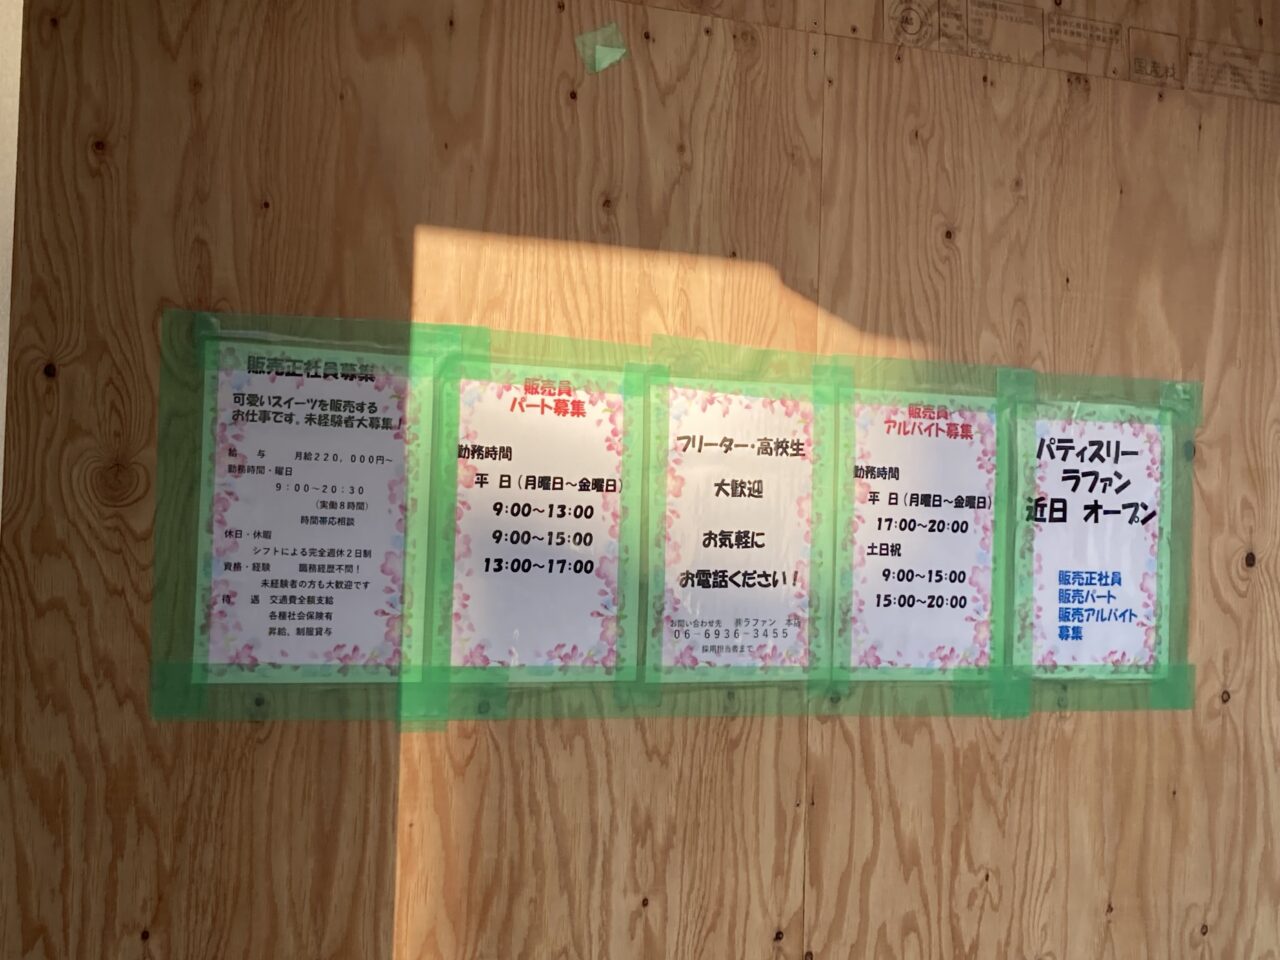 国産材
販売正社員募集
可愛いスイーツを販売する
お仕事です。未経験者大募集!
給 与 月給220,000円~
勤務時間・曜日
9:00~20:30
(実働8時間)
時間帯応相談
休日・休暇
シフトによる完全週休2日制
資格・経験 職務経歴不問!
未経験者の方も大歓迎です
待 遇 交通費全額支給
各種社会保険有
昇給、制服貸与
販売員
パート募集
勤務時間
平 日(月曜日~金曜日)
9:00~13:00
9:00~15:00
13:00~17:00
フリーター・高校生
大歓迎
お気軽に
お電話ください!
お問い合わせ先 ㈲ラファン 本店
06-6936-3455
採用担当者まで
販売員
アルバイト募集
勤務時間
平 日(月曜日~金曜日)
17:00~20:00
土日祝
9:00~15:00
15:00~20:00
パティスリー
ラファン
近日 オープン
販売正社員
販売パート
販売アルバイト
募集